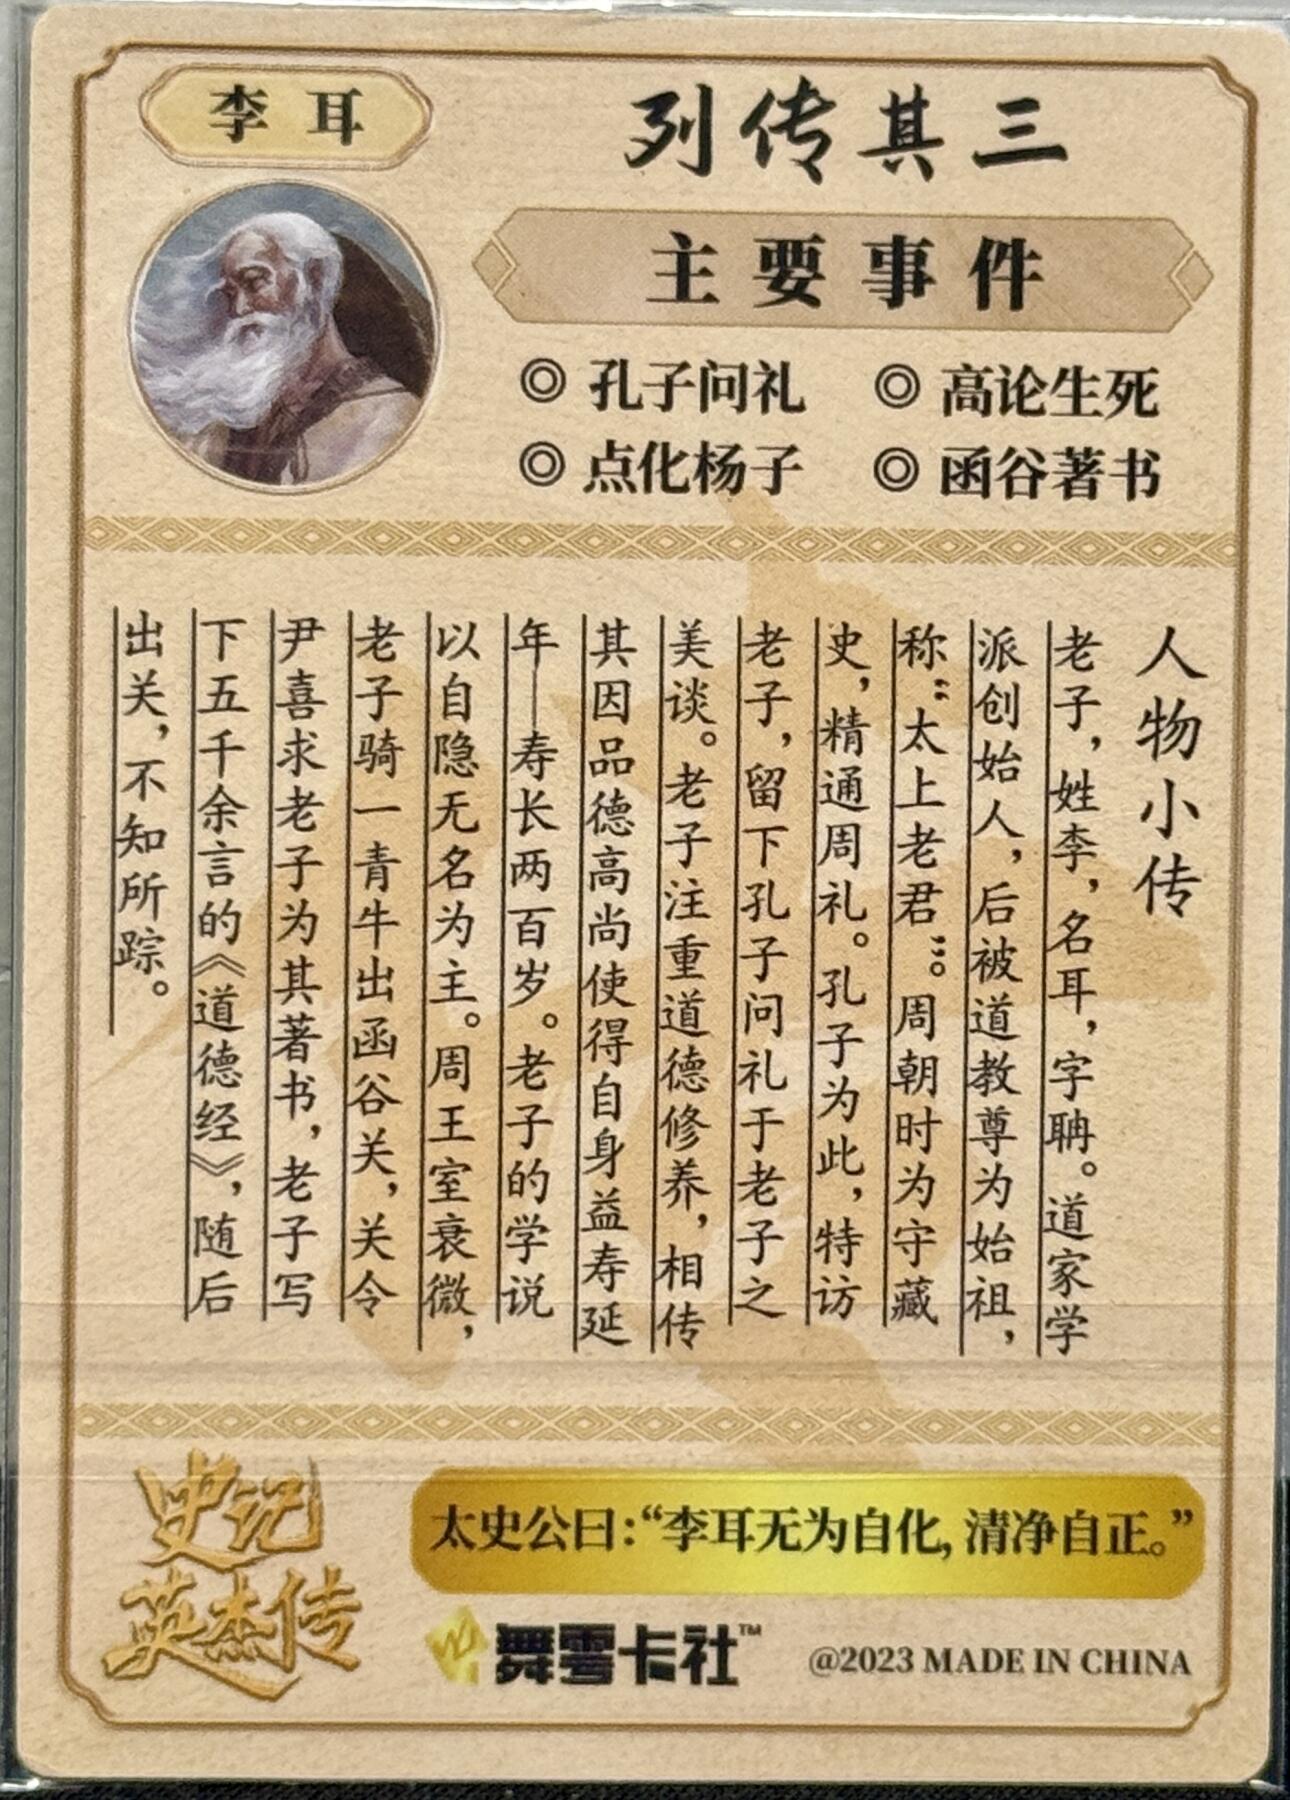 李耳
列传其三
主要事件
◎ 孔子问礼 ◎ 高论生死
◎ 点化杨子 ◎ 函谷著书
人物小传
老子，姓李，名耳，字聃。道家学
派创始人，后被道教尊为始祖，
称“太上老君”。周朝时为守藏
史，精通周礼。孔子为此，特访
老子，留下孔子问礼于老子之
美谈。老子注重道德修养，相传
其因品德高尚使得自身益寿延
年——寿长两百岁。老子的学说
以自隐无名为主。周王室衰微，
老子骑一青牛出函谷关，关令
尹喜求老子为其著书，老子写
下五千余言的《道德经》，随后
出关，不知所踪。
史记
英杰传
太史公曰：“李耳无为自化，清净自正。”
舞雩卡社™
@2023 MADE IN CHINA